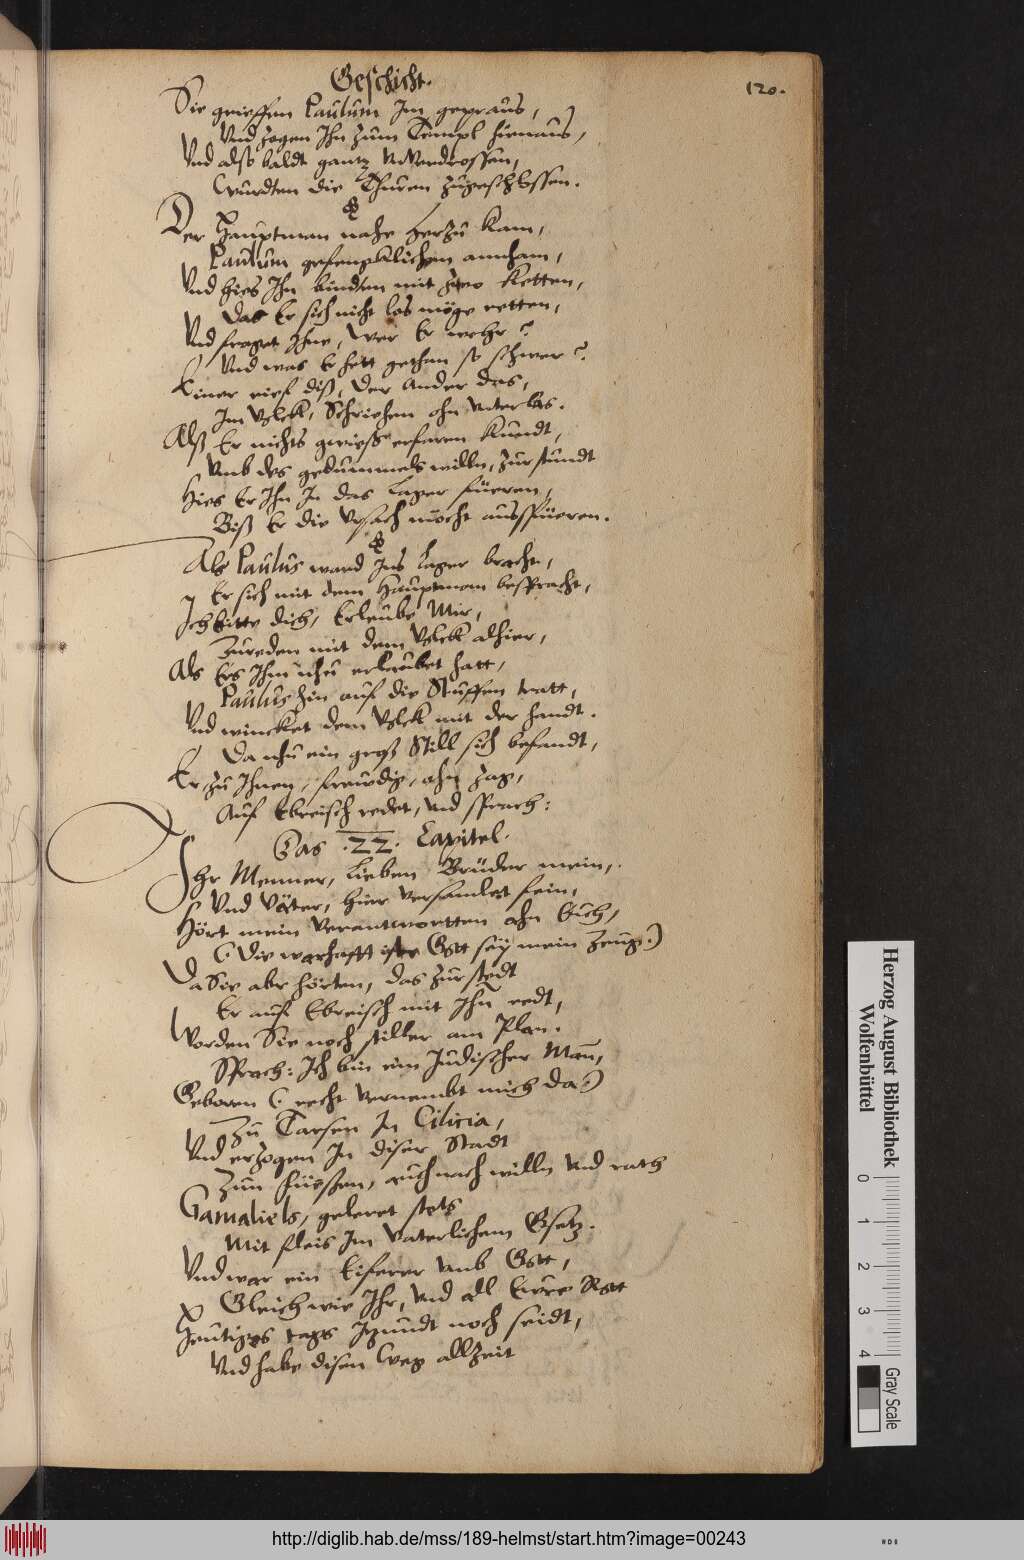 Geschicht.
120.
Sie grieffen Paulum Im gepraus,
Vnd zogen Ihn zum Templ hienaus,
Vnd alsbaldt gantz Vnverdrossen,
Wurdten die Thuren zugeschlossen.
Der Hauptman nahe herzu kam,
Paulum gefengklichen annham,
Vnd hies Ihn binden mit zwo Ketten,
Das Er sich nicht los möge retten,
Vnd fraget Ihne, wer Er wehr?
Vnd was Er hett gethan so schwer?
Einer rief diß, der Ander das,
Im Volck, Schriehen ohn Vnterlas.
Alß Er nichts gwiess erfaren kundt,
Vmb des getummels willn, zur stundt
Hies Er Ihn In das Lager füeren,
Biß Er die Vrsach möcht ausfüeren.
Als Paulus ward Ins Lager bracht,
Er sich mit dem Hauptman bespracht,
Ich bitte dich, Erleube Mir,
Zureden mit dem Volck alhier,
Als Ers Ihm nhu erlaubet hatt,
Paulus hin auf die Stuffen tratt,
Vnd wincket dem Volck mit der handt.
Da nhu ein groß Still sich befandt,
Er zu Ihnen, freudig, ohn zag,
Auf Ebreisch redet, vnd sprach:
Das .22. Capitel.
Ihr Menner, Lieben Brüder mein,
Vnd Väter, hier versamlet sein,
Hört mein verantwortten ahn Euch,
(Die warhafft ist Gott sey mein Zeug.)
Da Sie abr hörten, das zur stedt
Er auf Ebreisch mit Ihn redt,
Worden Sie noch stiller am Plan.
Sprach: Ich bin ein Judischer Man,
Geboren (recht vernembt mich da)
Zu Tarsen In Cilicia,
Vnd erzogen In diser Stadt
Zun füessen, auch nach willn vnd rath
Gamaliels, geleret stets
Mit fleis Im Vaterlichem Gsetz.
Vnd war ein Eiferer vmb Gott,
Gleich wie Ihr, vnd all Eure Rott
Heutiges tags Itzundt noch seidt,
Vnd habe disen Weg allzeit
Herzog August Bibliothek
Wolfenbüttel
0 1 2 3 4
Gray Scale
http://diglib.hab.de/mss/189-helmst/start.htm?image=00243